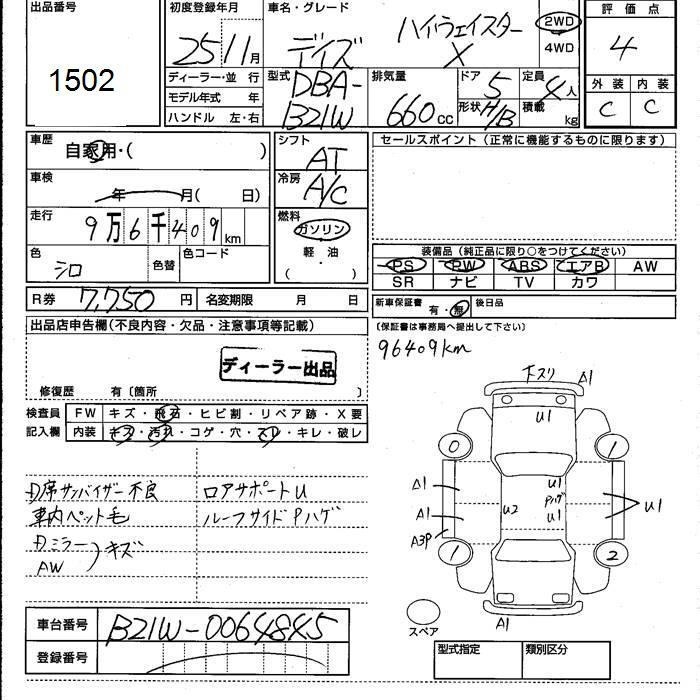 出品番号
1502
初度登録年月
25 11月
車名・グレード
デイズ ハイウェイスター X
2WD
4WD
評価点
4
外装 内装
C C
ディーラー・並 行
モデル年式 年
ハンドル 左・右
型式
DBA-
B21W
排気量
660cc
ドア 5
形状 H/B
定員 4人
積載 kg
車歴
自家用・( )
車検
年 月( 日)
走行
9万6千409km
色
シロ
色替
色コード
R券 7,750円
名変期限 月 日
シフト
AT
冷房
A/C
燃料
ガソリン
軽・油
( ・ )
セールスポイント(正常に機能するものに限ります)
装備品(純正品に限り○をつけてください)
PS PW ABS エアB AW
SR ナビ TV カワ
新車保証書 有・無 後日品
(保証書は事務局へ提出して下さい)
96409km
出品店申告欄(不良内容・欠品・注意事項等記載)
ディーラー出品
修復歴 有〔箇所 〕
検査員
記入欄
FW キズ・飛石・ヒビ割・リペア跡・X要
内装 キズ・汚れ・コゲ・穴・スレ・キレ・破レ
D席サンバイザー不良
車内ペット毛
Dミラー
AW
キズ
ロアサポートU
ルーフサイドPハゲ
下スリ A1
U1
0 1
A1 U1
Pハゲ
A1 U2 U1 U1
A3P
1 2
A1
スペア
車台番号 B21W-0064845
登録番号
型式指定 類別区分